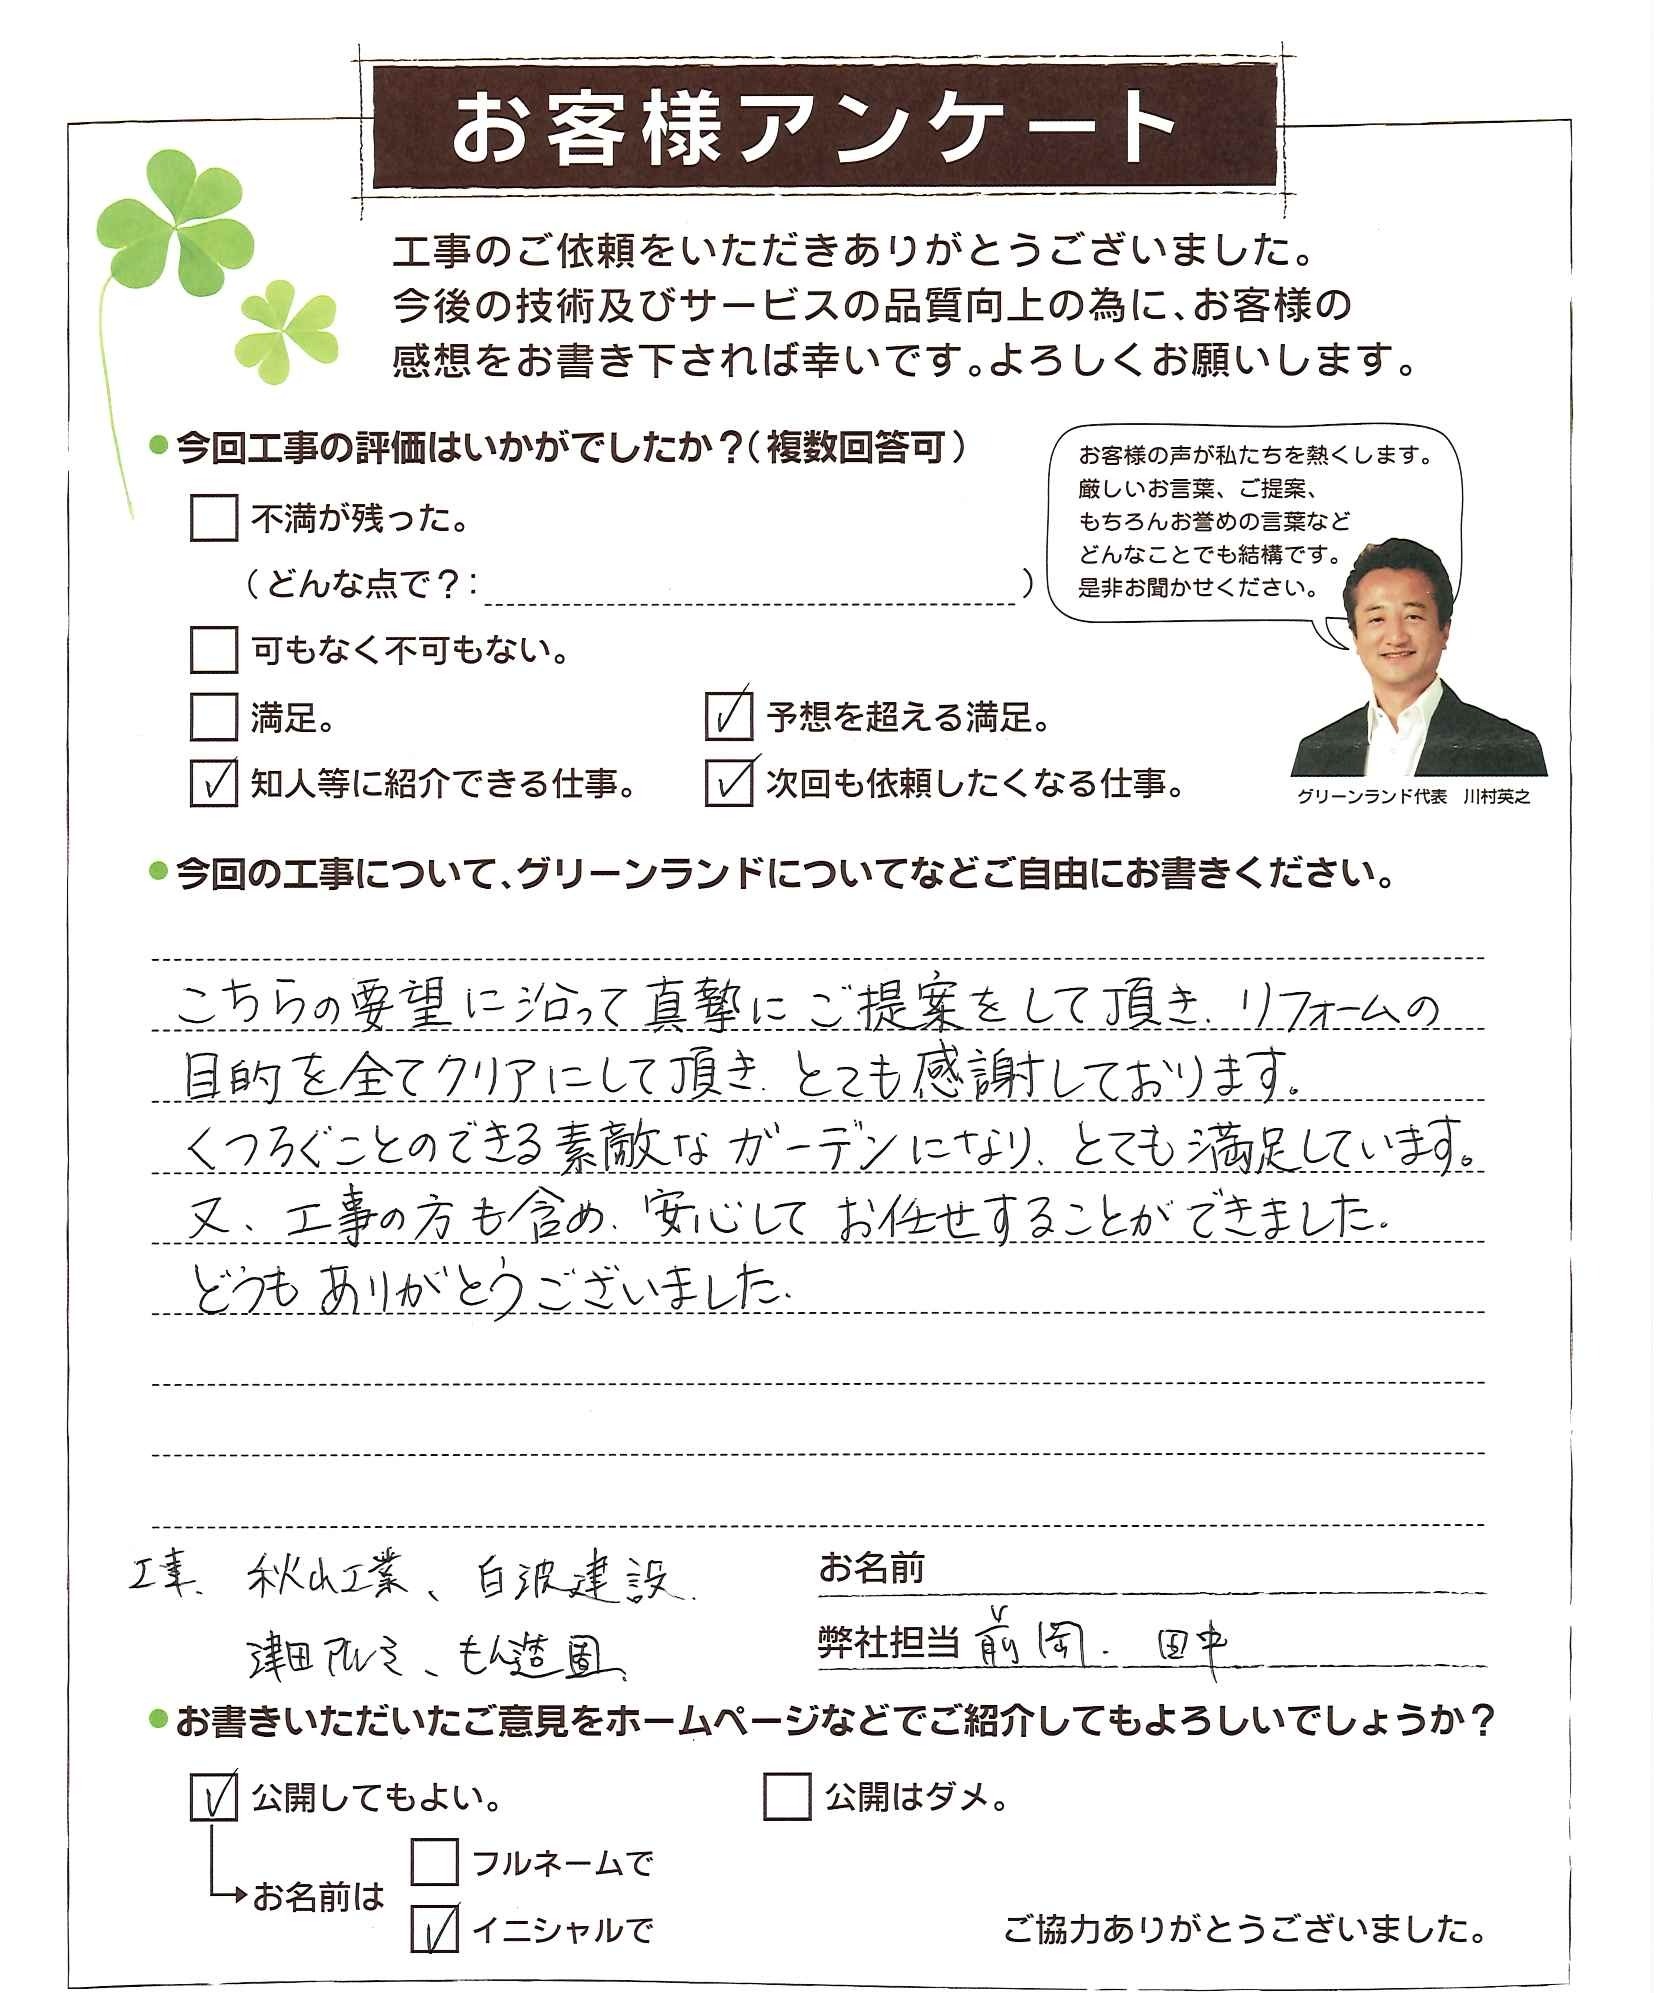 お客様アンケート
工事のご依頼をいただきありがとうございました。
今後の技術及びサービスの品質向上の為に、お客様の
感想をお書き下されば幸いです。よろしくお願いします。
●今回工事の評価はいかがでしたか？（複数回答可）
不満が残った。
（どんな点で？：　）
可もなく不可もない。
満足。
予想を超える満足。
知人等に紹介できる仕事。
次回も依頼したくなる仕事。
お客様の声が私たちを熱くします。
厳しいお言葉、ご提案、
もちろんお誉めの言葉など
どんなことでも結構です。
是非お聞かせください。
グリーンランド代表　川村英之
●今回の工事について、グリーンランドについてなどご自由にお書きください。
こちらの要望に沿って真摯にご提案をして頂き、リフォームの
目的を全てクリアにして頂き、とても感謝しております。
くつろぐことのできる素敵なガーデンになり、とても満足しています。
又、工事の方も含め、安心してお任せすることができました。
どうもありがとうございました。
工事、秋山工業、白波建設、
津田アルミ、もん造園、
お名前
弊社担当 前岡、田中
●お書きいただいたご意見をホームページなどでご紹介してもよろしいでしょうか？
公開してもよい。
公開はダメ。
お名前は
フルネームで
イニシャルで
ご協力ありがとうございました。